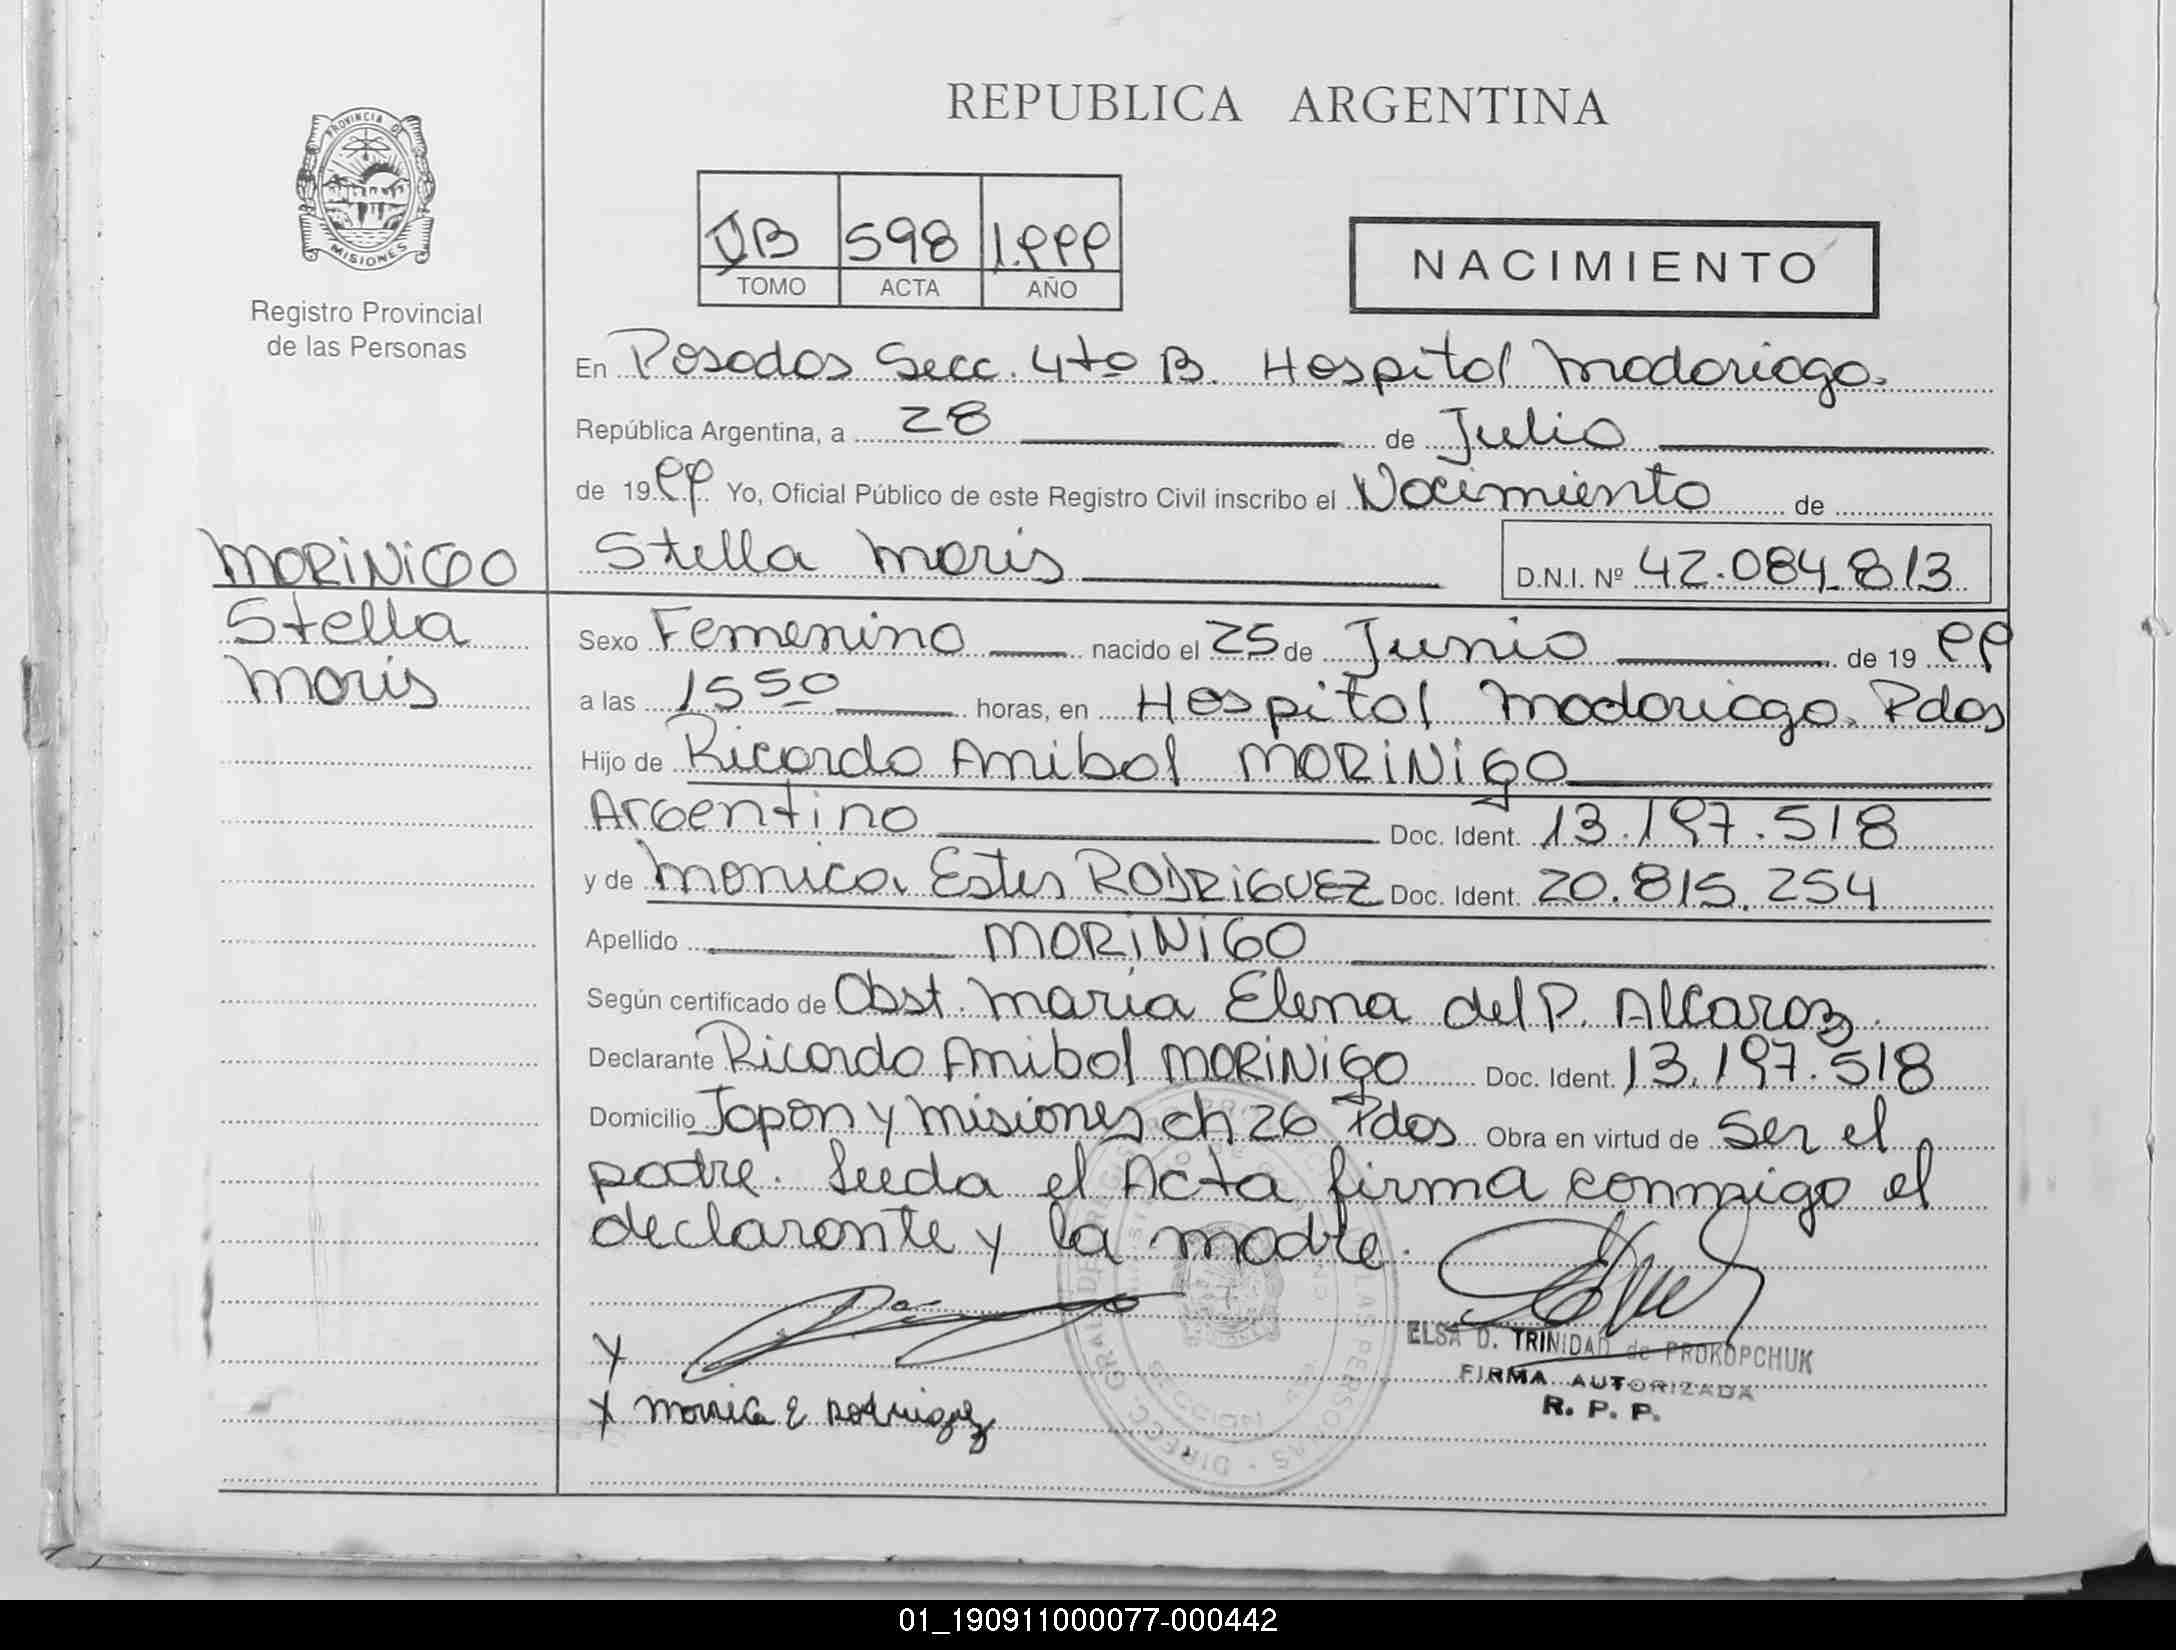 REPUBLICA ARGENTINA
PROVINCIA DE
MISIONES
Registro Provincial
de las Personas
598 1.999
TOMO ACTA AÑO
NACIMIENTO
En Posadas Secc. 4ta B. Hospital Madariaga.
República Argentina, a 28 de Julio
de 1999 Yo, Oficial Público de este Registro Civil inscribo el Nacimiento de
MORINIGO
Stella Maris D.N.I. Nº 42.084.813
Stella
Maris
Sexo Femenino nacido el 25 de Junio de 1999
a las 15 50 horas, en Hospital Madariaga. Pdas
Hijo de Ricardo Anibal MORINIGO
Argentino Doc. Ident. 13.197.518
y de Monica Ester RODRIGUEZ Doc. Ident. 20.815.254
Apellido MORINIGO
Según certificado de Obst. Maria Elena del P. Alcaraz.
Declarante Ricardo Anibal MORINIGO Doc. Ident. 13.197.518
Domicilio Japon y Misiones ch 26 Pdas Obra en virtud de Ser el
padre. Leeda el Acta firma conmigo el
declarante y la madre.
X Monica E Rodriguez
ELSA D. TRINIDAD de PROKOPCHUK
FIRMA AUTORIZADA
R. P. P.
01_190911000077-000442